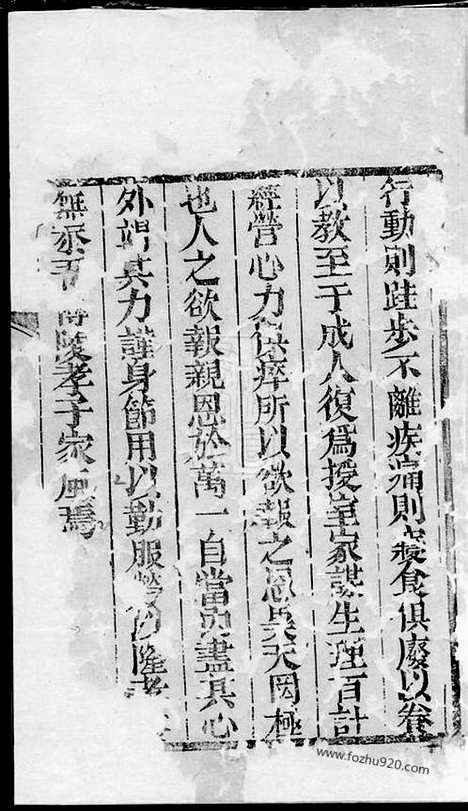 行動則跬步不離疾痛則寢食俱廢以眷
以教至于成人復爲授室家謀生理百計
經營心力俱瘁所以欲報之恩昊天罔極
也人之欲報親恩於萬一自當內盡其心
外竭其力謹身節用以勤服勞以隆孝
無忝 陵孝子家風焉
www.fozhu920.com